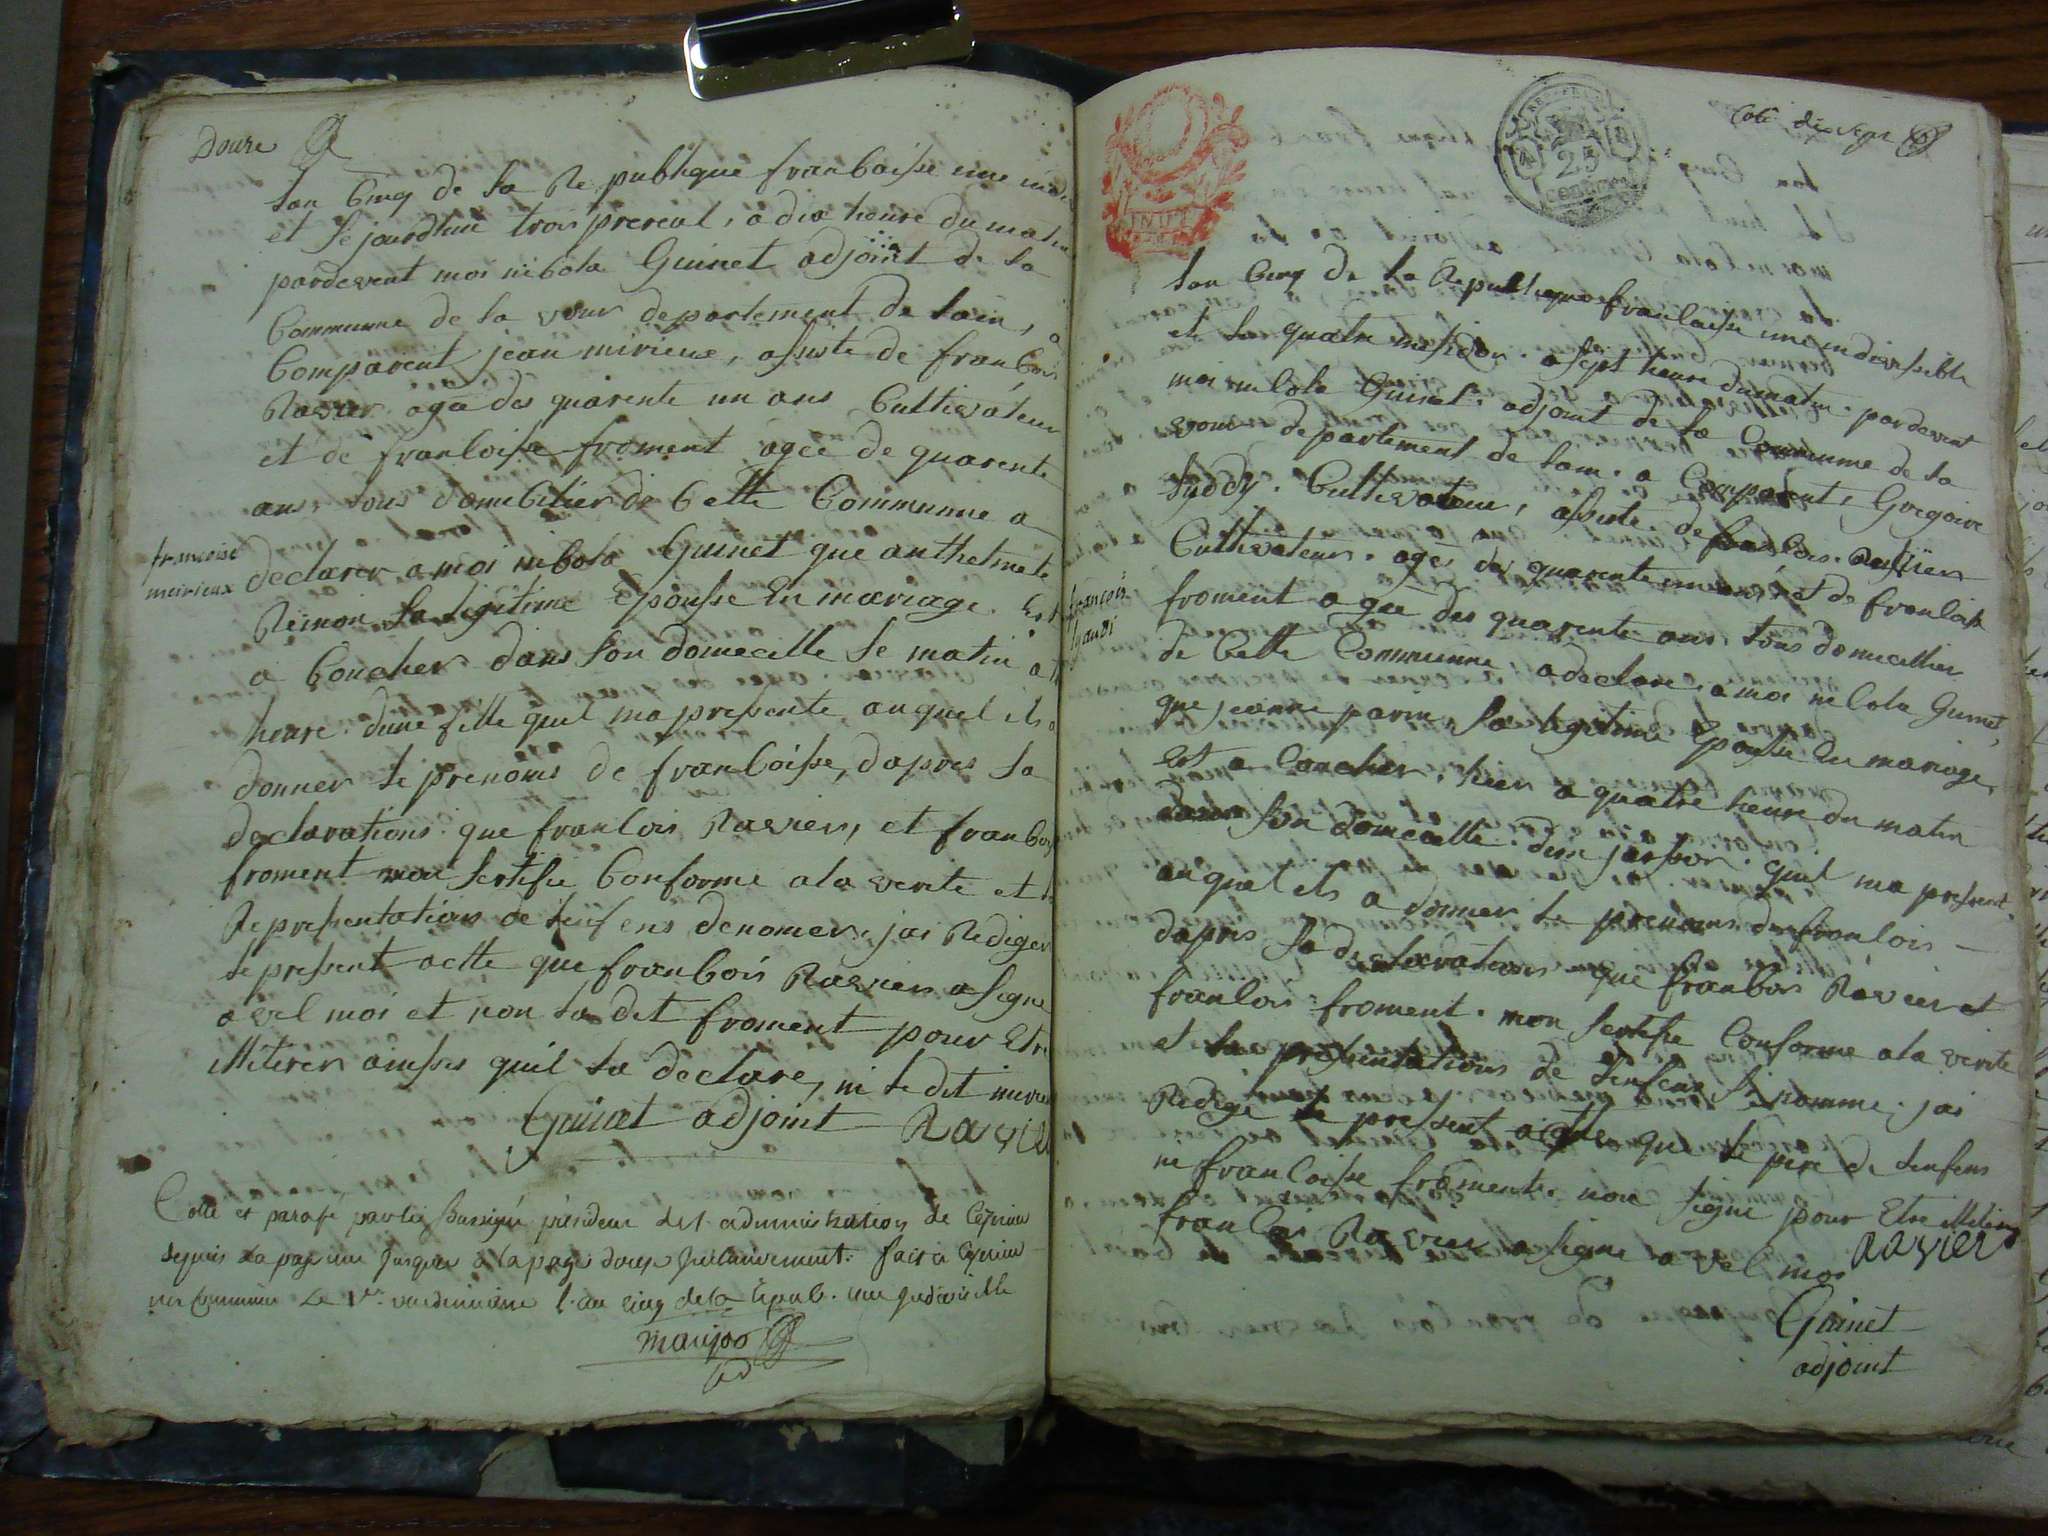 Douze
Lan Cinq de la Republique francoisse une
et sejourdhui trois prereal, a dix heure du matin
pardevent moi nicola Guinet adjoint de la
Commune de la vour departement de lain, a
Comparent jean mirieux, assiste de francois
Ravier agée des quarente un ans Cultivateur
et de francloisse froment agée de quarente
ans tous domicilier de Cette Communne a
declarer a moi nicola Guinet que anthelmete
francoise
meirieux
Reimon Sa legitime Epousse En mariage Est
a Coucher dans Son domecille Se matin a
heure dune fille quil ma pressente auquel ils a
donner le prenoms de francoisse, dapres la
declarations que francois Ravier, et francois
froment mon Sertifie Conforme a la verite et la
Repressentations de lenfens denomer, jai Rediger
le pressent actte que francois Ravier a Signe
avec moi et non la dit froment pour Etre
illiterer ainssis quil la declare, ni le dit mirieux
Guinet adjoint Ravier
Cotté et parafé par les soussigné président de l administration de Ceyrieu
depuis la page une jusques à la page douze Inclusivement. fait à Ceyrieu
le Ver vendemiaire l'an cinq de la Répub. une indivisible
maujoo
Coté dix sept
25
centimes
Lan Cinq de La Republiques francaisse une indivissible
et le quatre messidor a sept heure du matin pardevent
moi nicola Guinet adjoint de la Commune de la
vour departement de lain a Comparent, Gregoire
Lyddy Cultivateur, assiste de francois Ravier
Cultivateur agés des quarente un ans et de francoisse
froment agée des quarente ans tous domecillier
françois
lyaudi
de Cette Communne a declare a moi nicola Guinet,
que jeanne parin Sa legitime Epousse En mariage,
Est a Coucher, hier a quatre heure du matin
dans Son domecille dun jarson quil ma pressent
auquel ils a donner le prenoms de francois
dapres la declarations que francois Ravier et
francois froment mon Sertifie Conforme a la verite
et la pressentations de lenfens Sinomme, jai
Redige le pressent actte que le pere de lenfens
ni francaisse froment non Signe pour Etre illiterer
francois Ravier a Signe avec moi
Ravier
Guinet
adjoint